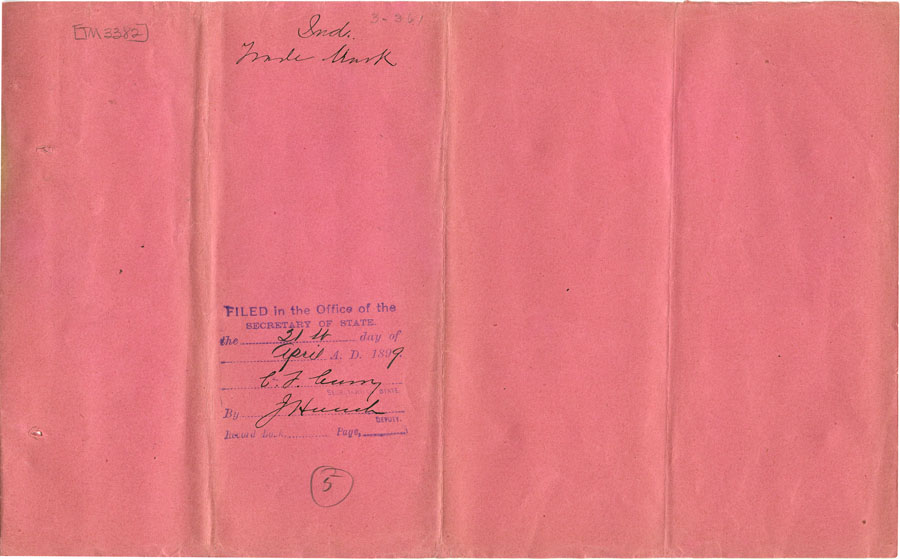 TM 3382
3-361
Ind.
Trade Mark
FILED in the Office of the
SECRETARY OF STATE.
the 21st day of
April A. D. 1899.
C. F. Curry
STATE.
By J Hoesch
DEPUTY.
Record Book Page,
5